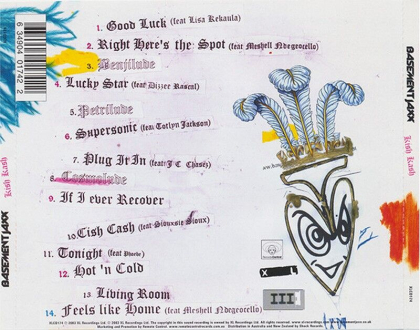 1. Good Luck (feat Lisa Kekaula)
2. Right Here's the Spot (feat Meshell Ndegeocello)
3. Benjilude
4. Lucky Star (feat Dizzee Rascal)
5. Petrilude
6. Supersonic (feat Totlyn Jackson)
7. Plug It In (feat J C Chasez)
8. Cosmolude
9. If I ever Recover
10. Cish Cash (feat Siouxsie Sioux)
11. Tonight (feat Phoebe)
12. Hot 'n Cold
13. Living Room
14. Feels like Home (feat Meshell Ndegeocello)
6 34904 01742 2
BASEMENT JAXX
Kish Kash
BASEMENT JAXX
Kish Kash
XL
III